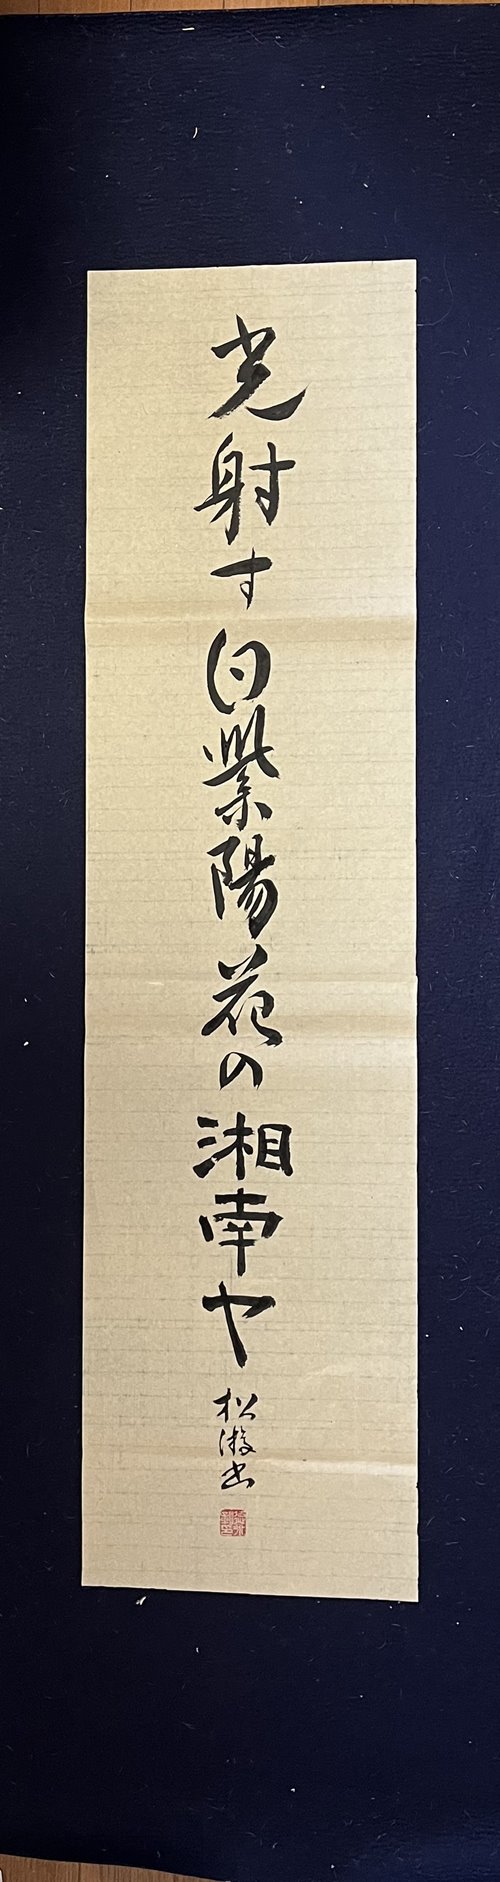 光射す白紫陽花の湘南や
松濤書